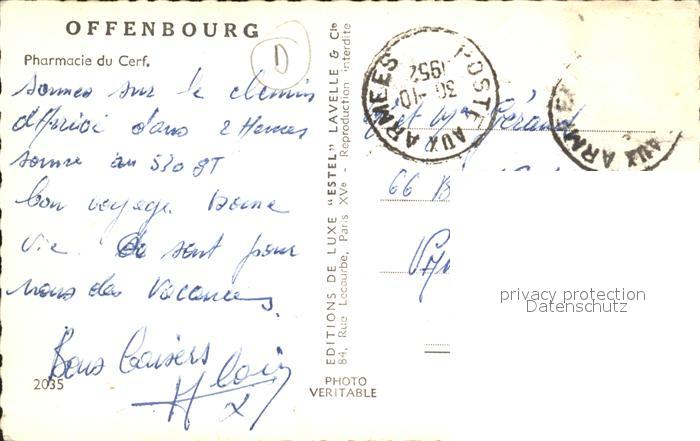 OFFENBOURG
D
Pharmacie du Cerf.
sommes sur le chemin
d'Arrivé dans 2 Heures
somme au 530 GT
bon voyage. Bonne
vie. Ce sont pour
nous des vacances,
Bons baisers
2035
EDITIONS DE LUXE "ESTEL" LAVELLE & Cie
84, Rue Lecourbe, Paris XVe - Reproduction interdite
PHOTO
VERITABLE
POSTE AUX ARMEES
30-10
1952
AUX ARMEE
et Gérard
66 B
privacy protection
Datenschutz